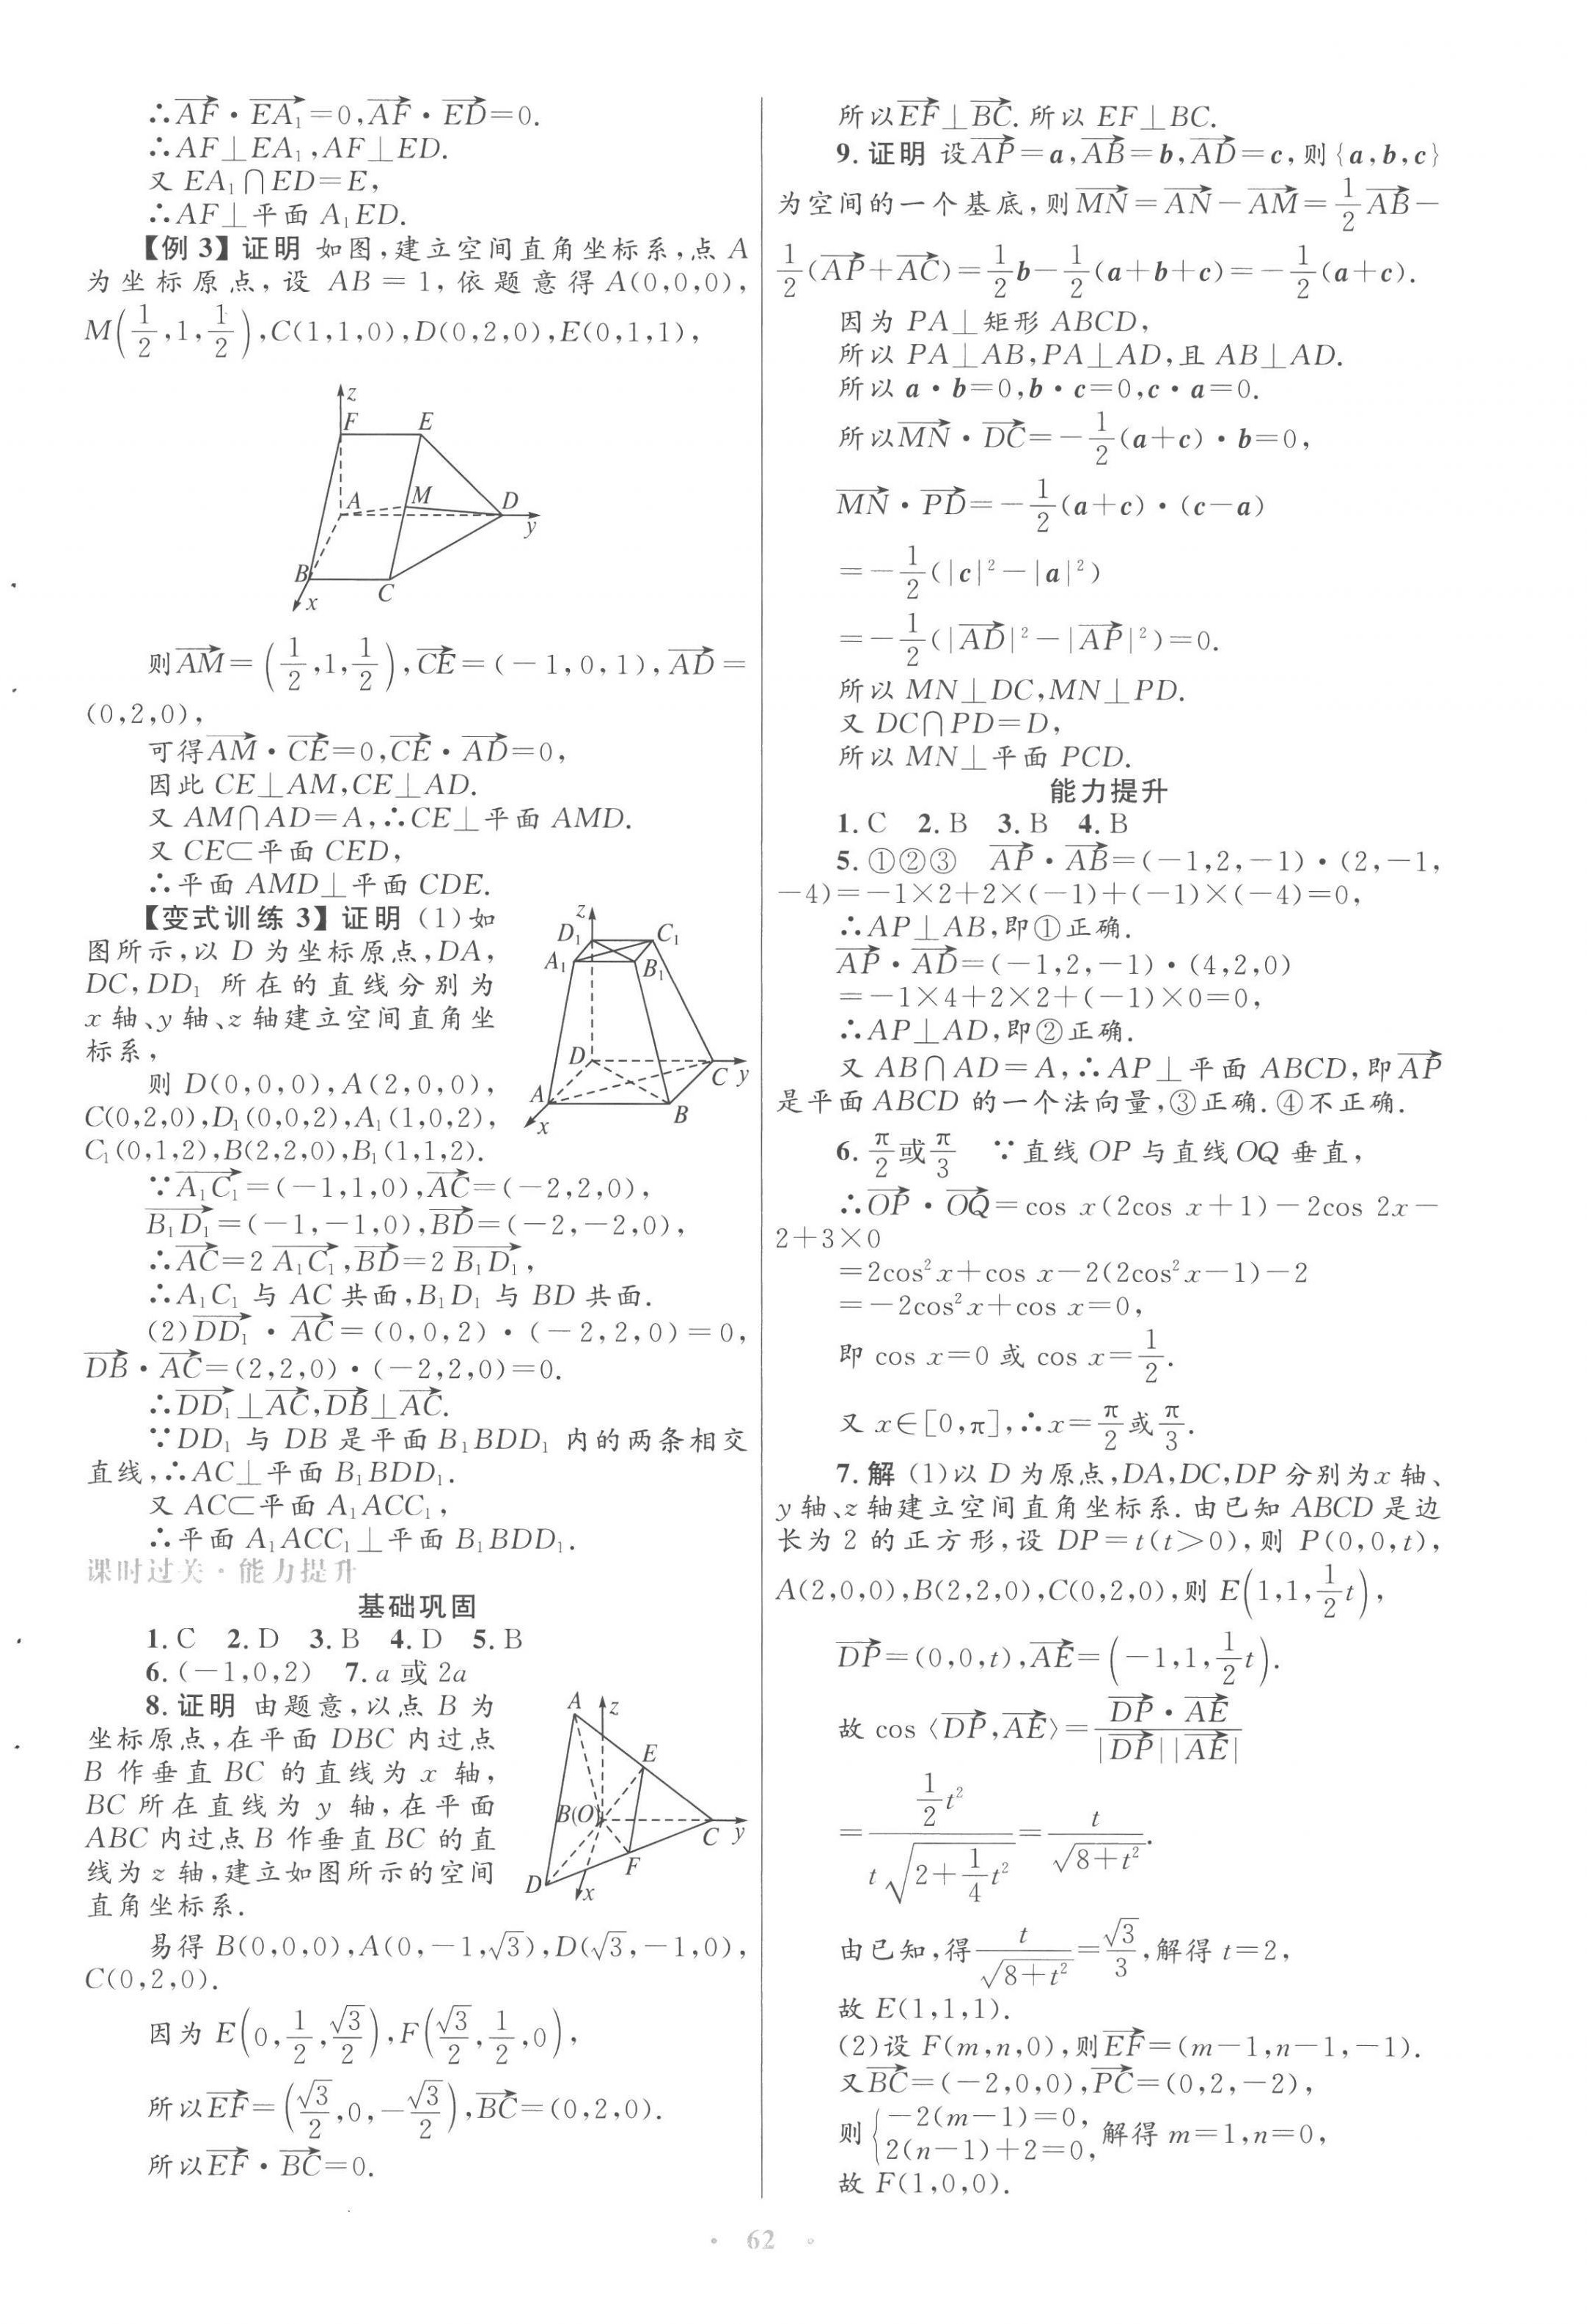 ∴AF·EA₁=0,AF·ED=0.
∴AF⊥EA₁,AF⊥ED.
又 EA₁∩ED=E,
∴AF⊥平面 A₁ED.
【例 3】证明 如图,建立空间直角坐标系,点 A
为坐标原点,设 AB=1,依题意得 A(0,0,0),
M(1/2,1,1/2),C(1,1,0),D(0,2,0),E(0,1,1),
z
F E
A M D
y
B
C
x
则AM=(1/2,1,1/2),CE=(-1,0,1),AD=
(0,2,0),
可得AM·CE=0,CE·AD=0,
因此 CE⊥AM,CE⊥AD.
又 AM∩AD=A,∴CE⊥平面 AMD.
又 CE⊂平面 CED,
∴平面 AMD⊥平面 CDE.
【变式训练 3】证明 (1)如
图所示,以 D 为坐标原点,DA,
DC,DD₁ 所在的直线分别为
x 轴、y 轴、z 轴建立空间直角坐
标系,
则 D(0,0,0),A(2,0,0),
C(0,2,0),D₁(0,0,2),A₁(1,0,2),
C₁(0,1,2),B(2,2,0),B₁(1,1,2).
z
D₁ C₁
A₁ B₁
D
C y
A
B
x
∵A₁C₁=(-1,1,0),AC=(-2,2,0),
B₁D₁=(-1,-1,0),BD=(-2,-2,0),
∴AC=2 A₁C₁,BD=2 B₁D₁,
∴A₁C₁ 与 AC 共面,B₁D₁ 与 BD 共面.
(2)DD₁·AC=(0,0,2)·(-2,2,0)=0,
DB·AC=(2,2,0)·(-2,2,0)=0.
∴DD₁⊥AC,DB⊥AC.
∵DD₁ 与 DB 是平面 B₁BDD₁ 内的两条相交
直线,∴AC⊥平面 B₁BDD₁.
又 AC⊂平面 A₁ACC₁,
∴平面 A₁ACC₁⊥平面 B₁BDD₁.
课时过关·能力提升
基础巩固
1.C 2.D 3.B 4.D 5.B
6.(-1,0,2) 7.a 或 2a
8.证明 由题意,以点 B 为
坐标原点,在平面 DBC 内过点
B 作垂直 BC 的直线为 x 轴,
BC 所在直线为 y 轴,在平面
ABC 内过点 B 作垂直 BC 的直
线为 z 轴,建立如图所示的空间
直角坐标系.
A z
E
B(O)
C y
F
D
x
易得 B(0,0,0),A(0,-1,√3),D(√3,-1,0),
C(0,2,0).
因为 E(0,1/2,√3/2),F(√3/2,1/2,0),
所以EF=(√3/2,0,-√3/2),BC=(0,2,0).
所以EF·BC=0.
所以EF⊥BC.所以 EF⊥BC.
9.证明 设AP=a,AB=b,AD=c,则{a,b,c}
为空间的一个基底,则MN=AN-AM=1/2 AB-
1/2(AP+AC)=1/2 b-1/2(a+b+c)=-1/2(a+c).
因为 PA⊥矩形 ABCD,
所以 PA⊥AB,PA⊥AD,且 AB⊥AD.
所以 a·b=0,b·c=0,c·a=0.
所以MN·DC=-1/2(a+c)·b=0,
MN·PD=-1/2(a+c)·(c-a)
=-1/2(|c|²-|a|²)
=-1/2(|AD|²-|AP|²)=0.
所以 MN⊥DC,MN⊥PD.
又 DC∩PD=D,
所以 MN⊥平面 PCD.
能力提升
1.C 2.B 3.B 4.B
5.①②③ AP·AB=(-1,2,-1)·(2,-1,
-4)=-1×2+2×(-1)+(-1)×(-4)=0,
∴AP⊥AB,即①正确.
AP·AD=(-1,2,-1)·(4,2,0)
=-1×4+2×2+(-1)×0=0,
∴AP⊥AD,即②正确.
又 AB∩AD=A,∴AP⊥平面 ABCD,即AP
是平面 ABCD 的一个法向量,③正确.④不正确.
6.π/2或π/3 ∵直线 OP 与直线 OQ 垂直,
∴OP·OQ=cos x(2cos x+1)-2cos 2x-
2+3×0
=2cos²x+cos x-2(2cos²x-1)-2
=-2cos²x+cos x=0,
即 cos x=0 或 cos x=1/2.
又 x∈[0,π],∴x=π/2或π/3.
7.解 (1)以 D 为原点,DA,DC,DP 分别为 x 轴、
y 轴、z 轴建立空间直角坐标系.由已知 ABCD 是边
长为 2 的正方形,设 DP=t(t>0),则 P(0,0,t),
A(2,0,0),B(2,2,0),C(0,2,0),则 E(1,1,1/2 t),
DP=(0,0,t),AE=(-1,1,1/2 t).
故 cos〈DP,AE〉=DP·AE/|DP||AE|
=1/2 t²/t√(2+1/4 t²)=t/√(8+t²).
由已知,得t/√(8+t²)=√3/3,解得 t=2,
故 E(1,1,1).
(2)设 F(m,n,0),则EF=(m-1,n-1,-1).
又BC=(-2,0,0),PC=(0,2,-2),
则{-2(m-1)=0, 2(n-1)+2=0, 解得 m=1,n=0,
故 F(1,0,0).
62